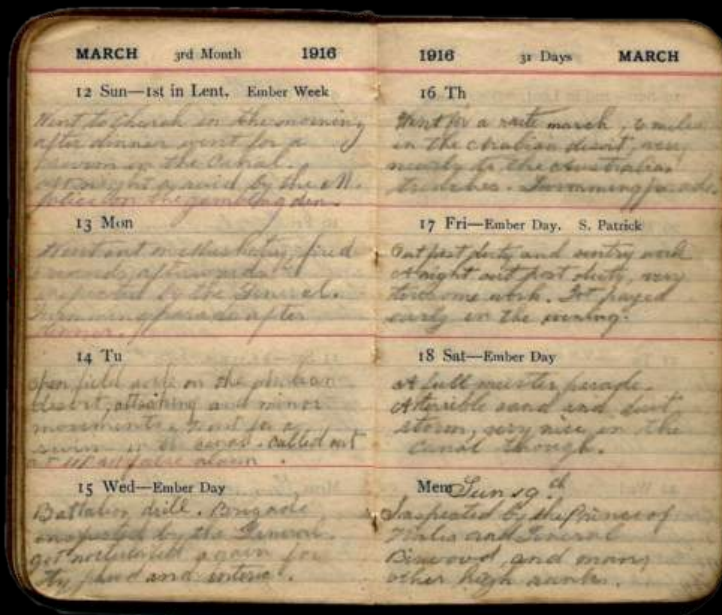 MARCH 3rd Month 1916
12 Sun—1st in Lent. Ember Week
Went to Church in the morning
after dinner went for a
swim in the Canal.
at night a raid by the M.
Police on the gambling den.
13 Mon
Went out on Musketry, fired
rounds, afterwards
inspected by the General.
Swimming parade after
dinner.
14 Tu
open field work on the Arabian
desert, attacking and minor
movements. Went for a
swim in the canal. called out
at false alarm.
15 Wed—Ember Day
Battalion drill. Brigade
inspected by the General.
got again for
and
1916 31 Days MARCH
16 Th
Went for a route march, 6 miles
in the Arabian desert, very
nearly to the Australian
trenches. Swimming parade.
17 Fri—Ember Day. S. Patrick
Out post duty and sentry work
A night out post duty, very
tiresome work. Got payed
early in the evening.
18 Sat—Ember Day
A full muster parade.
A terrible sand and dust
storm, very nice in the
canal though.
Mem Sun 19th
Inspected by the Prince of
Wales and General
and many
other high ranks.